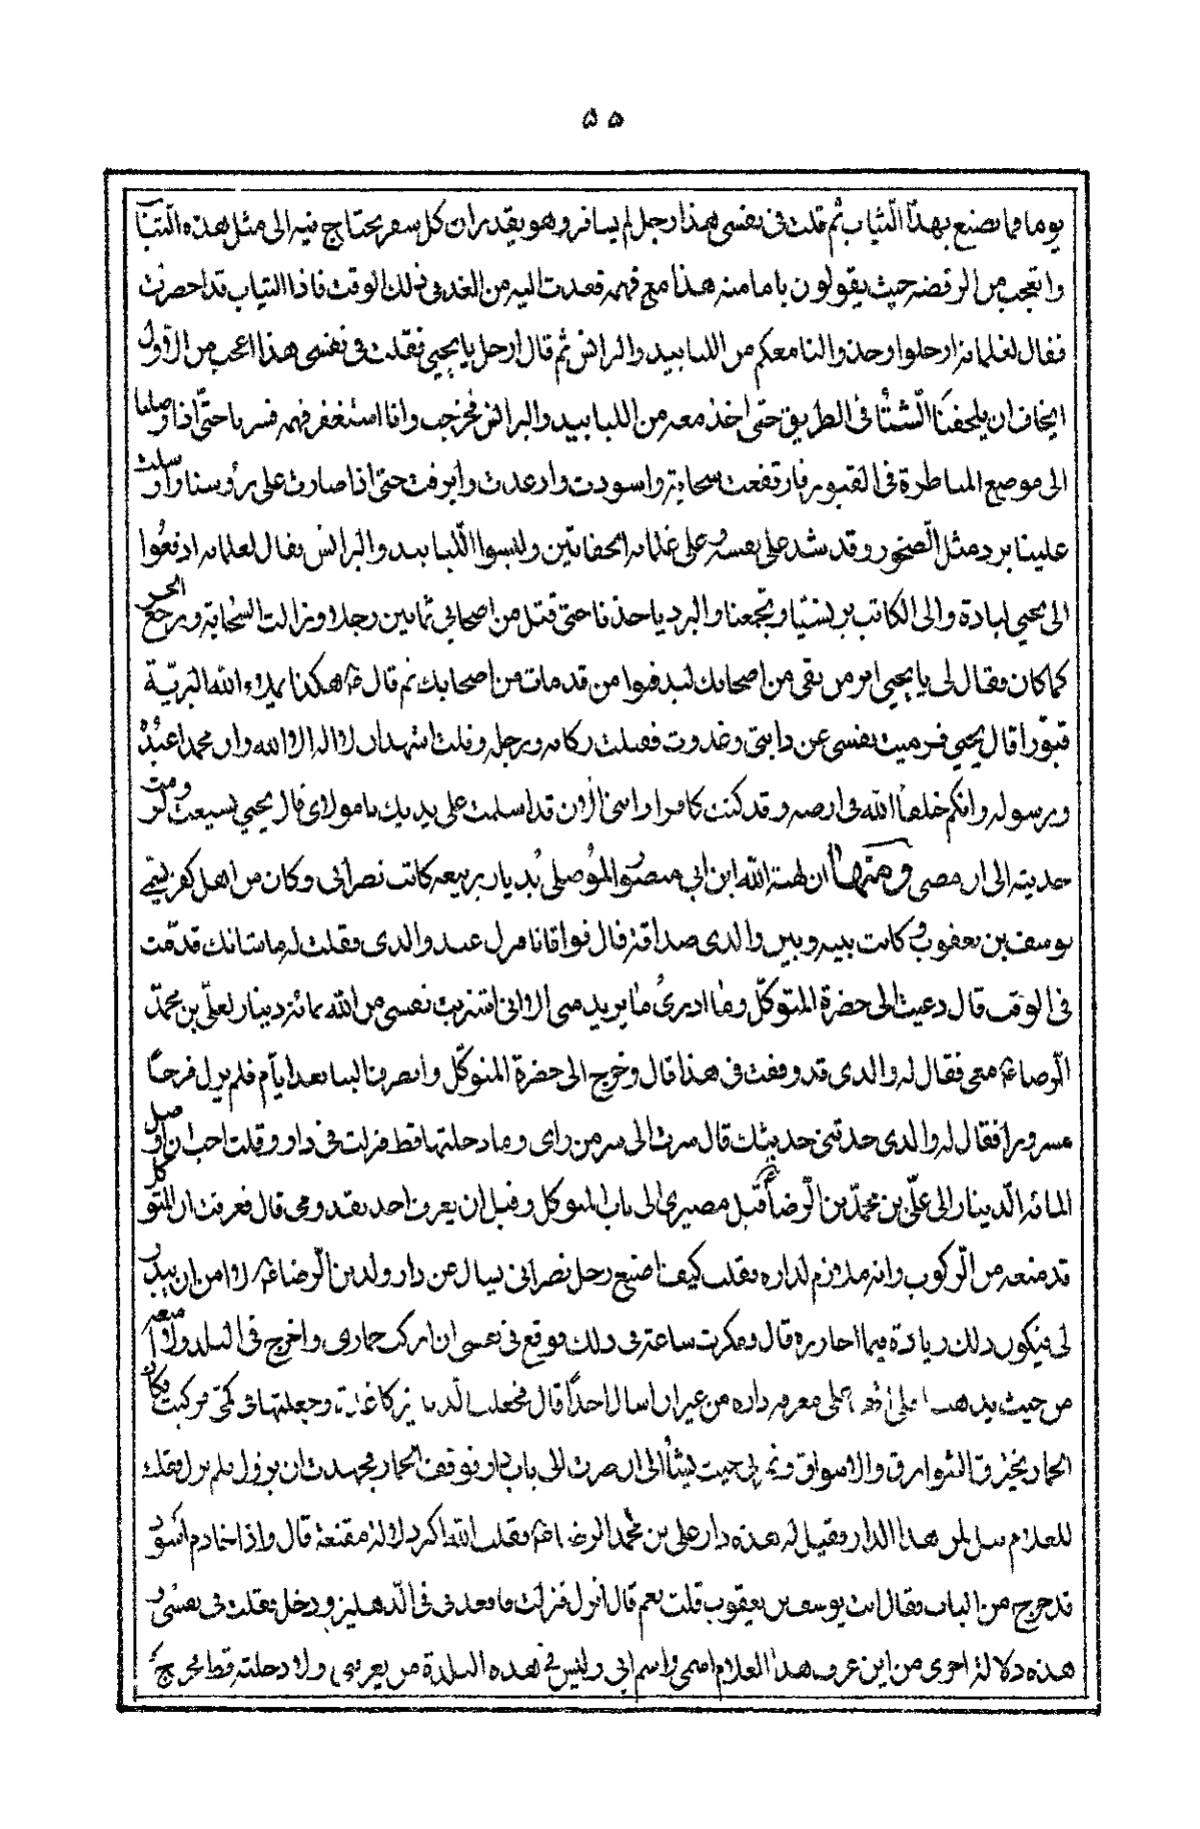 ۵۵
يوما فما يصنع بهذا الثياب ثم قلت فى نفسى هذا رجل لم يسافر و هو يقدر ان كل سفر يحتاج فيه الى مثل هذه الثيا
و اتعجب من الرفضه حيث يقولون بامامته هذا مع فهمه فعدت اليه من الغد فى ذلك الوقت فاذا الثياب قد احضرت
فقال لغلمانه ارحلوا و خذوا لنا معكم من اللبابيد و البرانس ثم قال ارحل يا يحيى فقلت فى نفسى هذا اعجب من الاول
ايخاف ان يلحقنا الشتا فى الطريق حتى اخذ معه من اللبابيد و البرانس فخرجت و انا استغفر فهمه فسرنا حتى اذا وصلنا
الى موضع المناظرة فى القبور فارتفعت سحابة و اسودت و ارعدت و ابرقت حتى اذا صارت على رؤسنا و ارسلت
علينا برد مثل الصخور و قد شد على نفسه و على غلمانه الخفاتين و لبسوا اللبابيد و البرانس فقال لغلمانه ادفعوا
الى يحيى لبادة و الى الكاتب برنسا و تجمعنا و البرد ياخذنا حتى قتل من اصحابى ثمانين رجلا و زالت السحابة و رجع الحر
كما كان فقال لى يا يحيى امر من بقى من اصحابك ليدفنوا من قد مات من اصحابك ثم قال ع هكذا يملاء الله البرية
قبورا قال يحيى فرميت بنفسى عن دابتى و غدوت فقبلت ركابه و رجله و قلت اشهد ان لا اله الا الله و ان محمدا عبده
و رسوله و انكم خلفاء الله فى ارضه و قد كنت كافرا و اننى الان قد اسلمت على يديك يا مولاى قال يحيى تشيعت و لزمت
خدمته الى ان مضى و منها ان هبة الله ابن ابى منصور الموصلى بديار ربيعه كاتب نصرانى و كان من اهل كفرتيمى
يوسف بن يعقوب و كانت بينه و بين والدى صداقة قال فوافانا فنزل عند والدى فقلت له ما شانك قدمت
فى الوقت قال دعيت الى حضرة المتوكل و ما ادرى ما يريد منى الا انى اشتريت نفسى من الله بمائة دينار لعلى بن محمد
الرضا ع معى فقال له والدى قد وفقت فى هذا قال و خرج الى حضرة المتوكل و انصرف الينا بعد ايام فلم يزل فرحا
مسرورا فقال له والدى حدثنى حديثك قال سرت الى سر من راى و ما دخلتها قط فنزلت فى دار و قلت احب ان اوصل
المائة الدينار الى على بن محمد بن الرضا ع قبل مصيرى الى باب المتوكل و قبل ان يعرف احد بقدومى قال فعرفت ان المتوكل
قد منعه من الركوب و انه ملازم لداره فقلت كيف اصنع رجل نصرانى يسال عن دار ولد بن الرضا ع لا امن ان يبدر
لى فيكون ذلك زيادة فيما احاذره قال ففكرت ساعة فى ذلك فوقع فى نفسى ان اركب حمارى و اخرج فى البلد و لا امنعه
من حيث يذهب معرفه داره من غير ان اسال احدا قال فجعلت الدنانير كاغذة و جعلتها فى كمى فركبت فكان
الحمار يخترق الشوارق و الاسواق و ثم يجيب يشأ الى ان صرت الى باب دار فوقف الحمار فجهدت ان يزول فلم يزل فقلت
للغلام سل لمن هذا الدار فقيل له هذه دار على بن محمد الرضا ع فقلت الله اكبر دلالة مقنعة قال و اذا خادم اسود
قد خرج من الباب فقال انت يوسف بن يعقوب قلت نعم قال انزل فنزلت فاقعدنى فى الدهليز و دخل فقلت فى نفسى و
هذه دلالة اخرى من اين عرف هذا الغلام اسمى و اسم ابى و ليس فى هذه البلدة من يعرفنى و لا دخلته قط فخرج